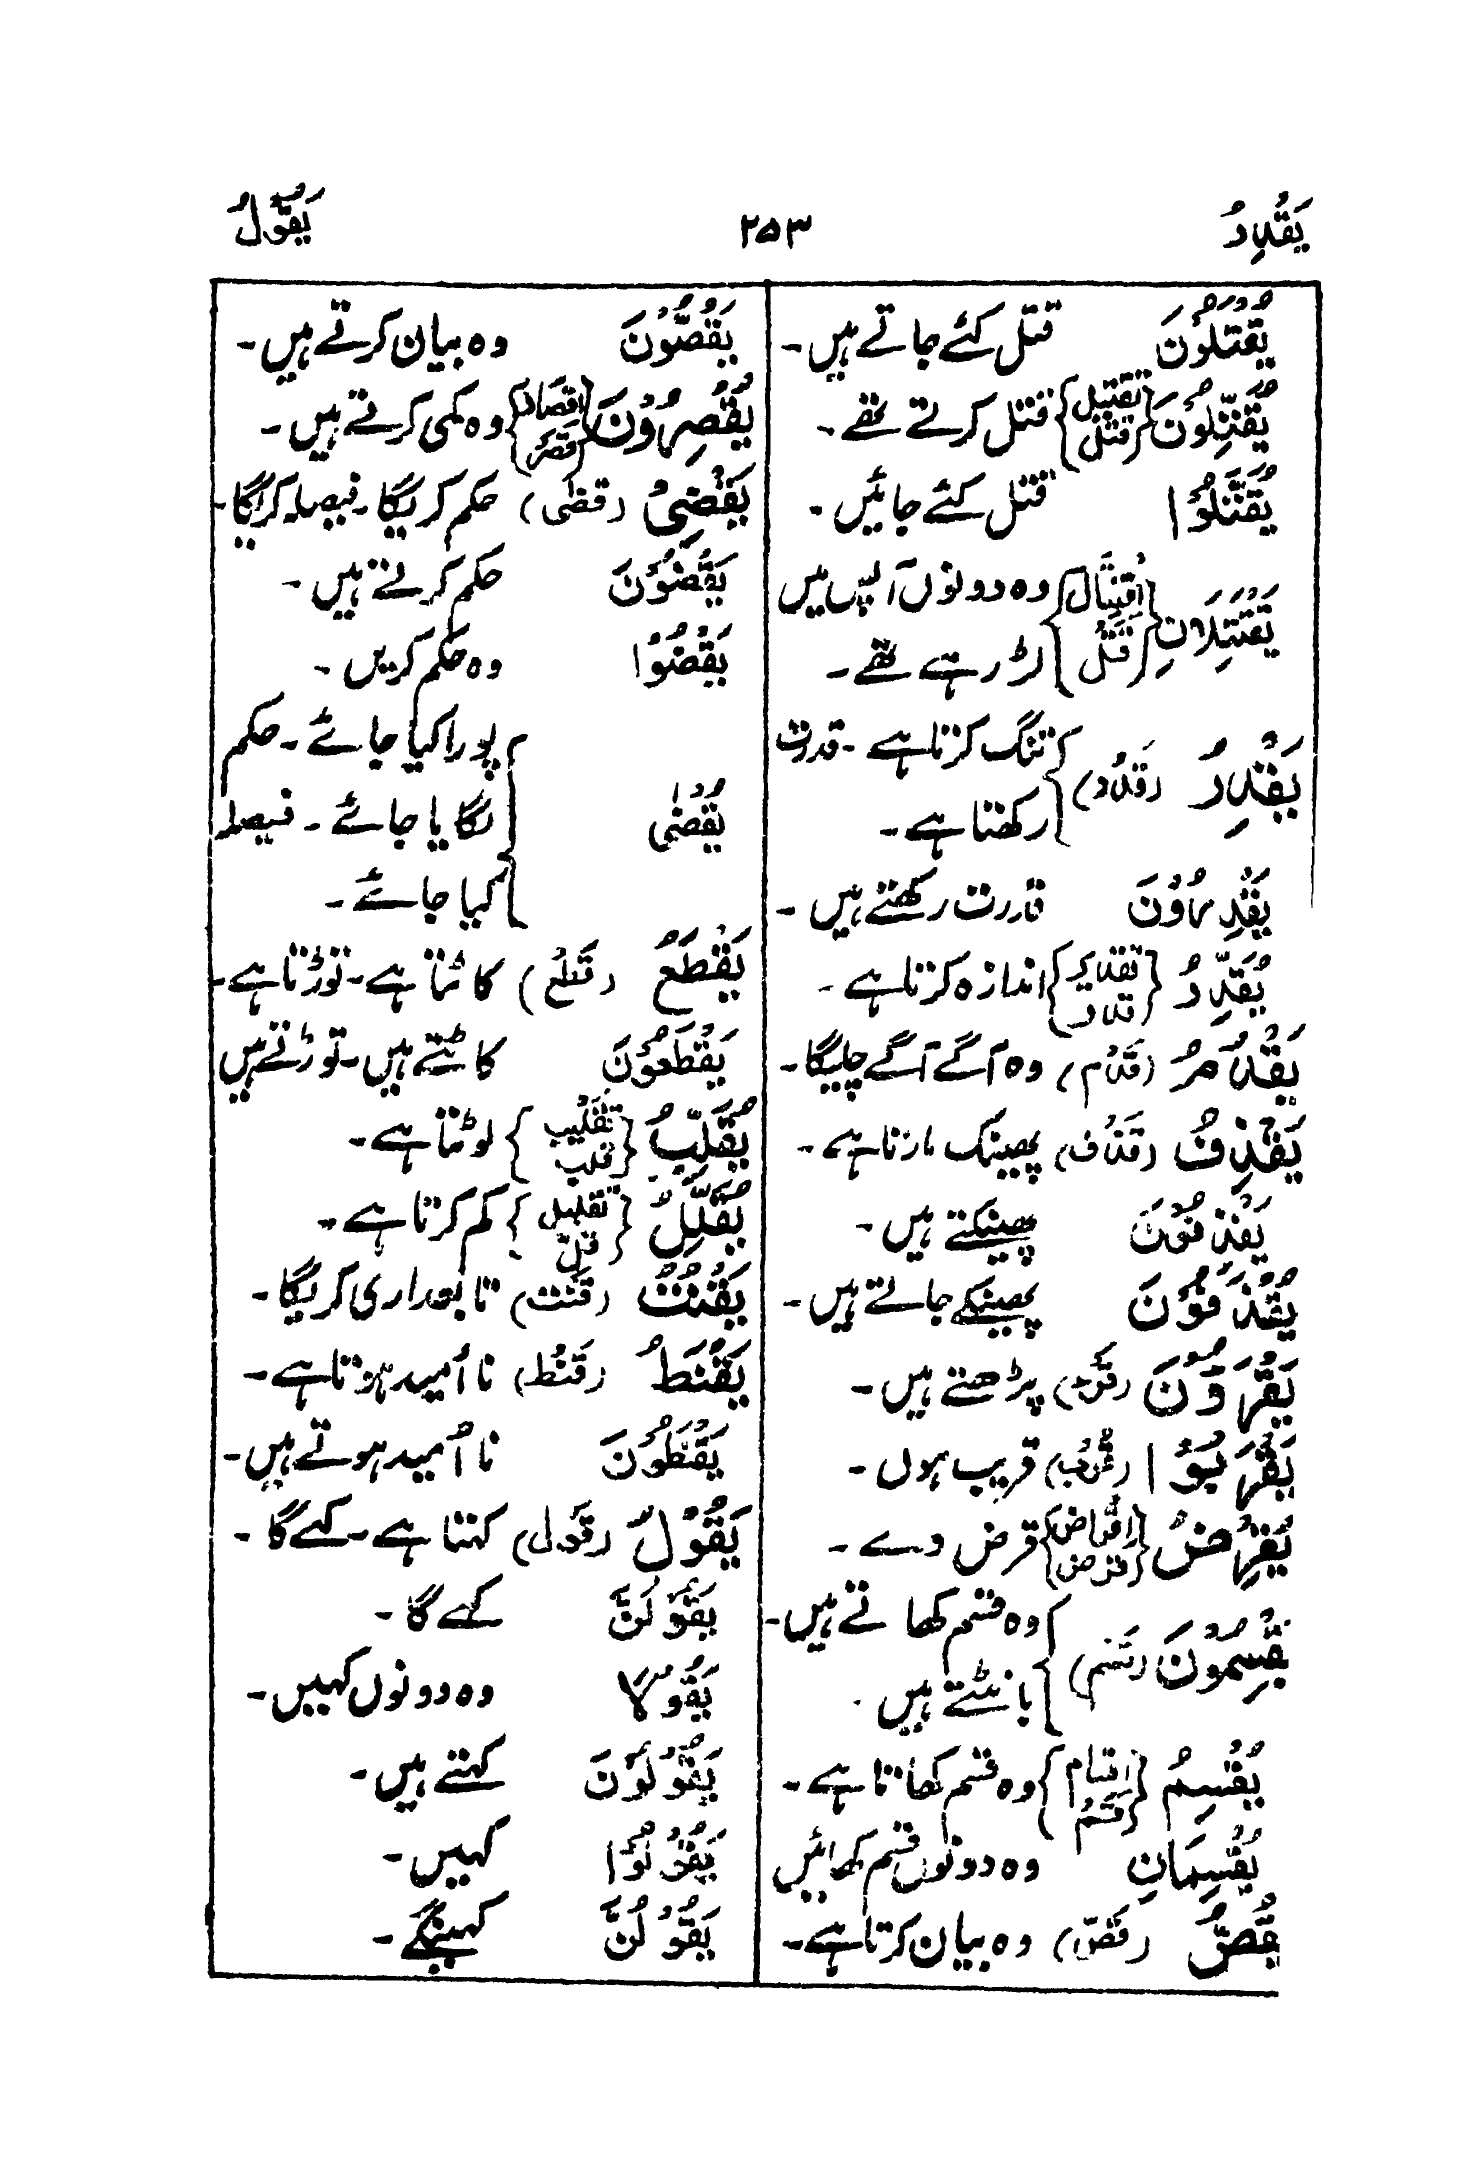 يَقْدِرُ ۲۵۳ يَقُوْلُ
يُقْتَلُوْنَ قتل کئے جاتے ہیں۔
يُقَتِّلُوْنَ {تقتیل قتل} قتل کرتے تھے۔
يُقَتَّلُوْا قتل کئے جائیں۔
يَقْتَتِلَانِ {اِقْتِتَال قَتْل} وہ دونوں آپس میں
لڑ رہے تھے۔
يَقْدِرُ (قَدْر) تنگ کرتا ہے۔ قدرت
رکھتا ہے۔
يَقْدِرُوْنَ قدرت رکھتے ہیں۔
يُقَدِّرُ {تقدیر قدر} اندازہ کرتا ہے۔
يَقْدُمُ (قَدُم) وہ آگے آگے چلیگا۔
يَقْذِفُ (قَذْف) پھینک مارتا ہے۔
يَقْذِفُوْنَ پھینکتے ہیں۔
يُقْذَفُوْنَ پھینکے جاتے ہیں۔
يَقْرَءُوْنَ پڑھتے ہیں۔
يَقْرَبُوْا (قُرْب) قریب ہوں۔
يُقْرِضُ {اِقْرَاض قرض} قرض دے۔
يَقْسِمُوْنَ (قَسْم) وہ قسم کھاتے ہیں۔
بانٹتے ہیں۔
يُقْسِمُ {اِقسام قَسَمُ} وہ قسم کھاتا ہے۔
يُقْسِمَانِ وہ دونوں قسم کھائیں
يَقُصُّ (قَصَص) وہ بیان کرتا ہے۔
يَقُصُّوْنَ وہ بیان کرتے ہیں۔
يُقْصِرُوْنَ {اِقصار قَصْر} وہ کمی کرتے ہیں۔
يَقْضِىْ (قضٰى) حکم کریگا۔ فیصلہ کرائگا۔
يَقْضُوْنَ حکم کرتے ہیں۔
يَقْضُوْا وہ حکم کریں۔
پورا کیا جائے۔ حکم
يُقْضٰى لگایا جائے۔ فیصلہ
کیا جائے۔
يَقْطَعُ (قَطْع) کاٹتا ہے۔ توڑتا ہے۔
يَقْطَعُوْنَ کاٹتے ہیں۔ توڑتے ہیں
يُقَلِّبُ {تَقْلِيب قلب} لوٹتا ہے۔
يُقَلِّلُ {تقلیل قلّ} کم کرتا ہے۔
يَقْنُتْ (قَنَت) تابعداری کریگا۔
يَقْنَطُ (قَنَط) نا اُمید ہوتا ہے۔
يَقْنَطُوْنَ نا اُمید ہوتے ہیں۔
يَقُوْلُ (قَول) کہتا ہے۔ کہے گا۔
يَقُوْلَنَّ کہے گا۔
يَقُوْلَا وہ دونوں کہیں۔
يَقُوْلُوْنَ کہتے ہیں۔
يَقُوْلُوْا کہیں۔
يَقُوْلُنَّ کہینگے۔